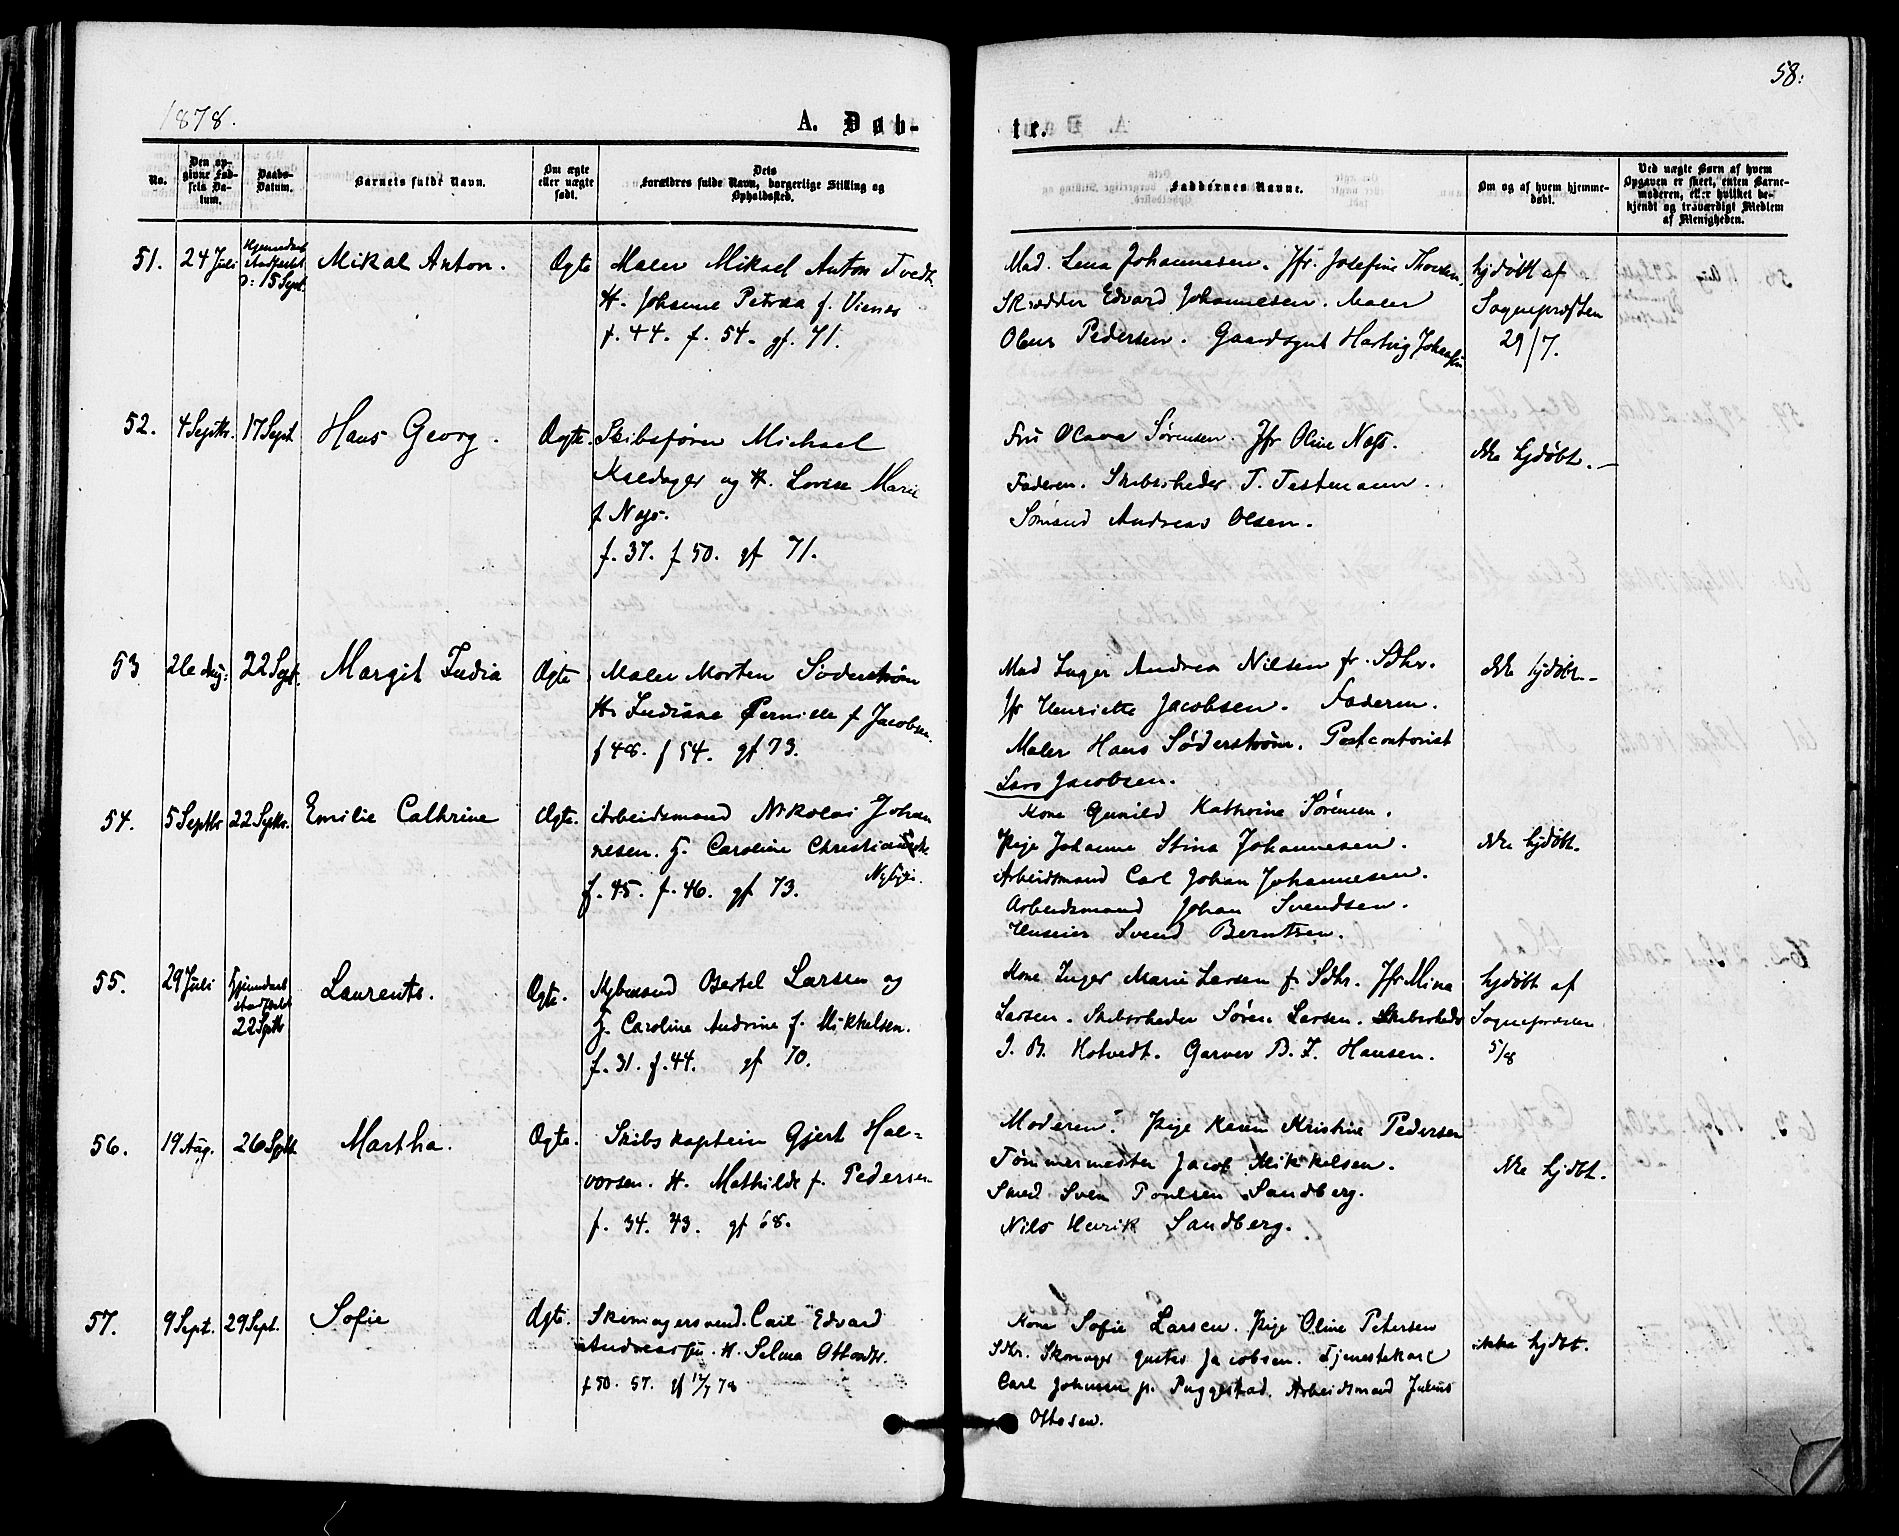 1878.
A. Døb-
No.
Den op-
givne Fød-
sels Da-
tum.
Daabs-
Datum.
Barnets fulde Navn.
Om ægte
eller uægte
født.
Dets
Forældres fulde Navn, borgerlige Stilling og
Opholdssted.
51.
24 Juli
15 Sept.
Mikal Anton.
Ægte
Maler Mikael Anton Tvedt
H. Johanne Petrea f.
f. 44. f. 54. gf. 71.
52.
4 Septbr.
17 Sept
Hans Georg.
Ægte.
Skibsfører Michael
og H. Lovise Marie
f Næss.
f. 37. f 50. gf 71.
53
26 Aug:
22 Sept.
Margit India
Ægte
Maler Morten Søderstrøm
H. Indiana Pernille f Jacobsen.
f 48. f 54. gf 73.
54.
5 Septbr
22 Septbr.
Emilie Cathrine
Ægte.
Arbeidsmand Nikolai Johan
nesen. H. Caroline
f. 45. f. 46. gf 73.
55.
29 Juli
22 Septbr
Laurents.
Ægte.
Bertel Larsen og
H. Caroline Andrine f. Mikkelsen.
f. 31. f. 44. gf 70.
56.
19 Aug.
26 Septb.
Martha.
Ægte.
Skibskaptein Gjert Hal-
vorsen. H. Mathilde f. Pedersen
f. 34. 43. gf 68.
57.
9 Sept.
29 Sept.
Sofie
Ægte.
Skomagersvend. Carl Edvard
H. Selma Ottosdtr.
f 50. 57. gf 12/7 78
58:
te.
Faddernes Navne.
Om og af hvem hjemme-
døbt.
Ved uægte Børn af hvem
Opgaven er skeet, enten Barne-
moderen, eller hvilket be-
kjendt og troværdigt Medlem
af Menigheden.
Mad. Lena Johannesen. Jfr. Josefine Thorsen.
Skrædder Edvard Johannesen. Maler
Olaus Pedersen. Gaardsgut Hartvig Johansen
hjdøbt af
Sognepræsten
29/7.
Fru Olava Sørensen. Jfr Oline Næss.
Faderen. Skibsrheder T. Testmann.
Sømand Andreas Olsen.
ikke hjdøbt.
Mad Inger Andrea Nilsen fr. Sdhr.
Jfr Henriette Jacobsen. Faderen.
Maler Hans Søderstrøm. Postcontorist
Lars Jacobsen.
ikke hjdøbt
Kone Gunild Kathrine Sørensen.
Pige Johanne Stina Johannesen.
Arbeidsmand Carl Johan Johannesen.
Arbeidsmand Johan Svendsen.
Huseier Svend Berntsen.
ikke hjdøbt.
Kone Inger Marie Larsen f. Sdhr. Jfr Mina
Larsen. Skibsrheder Søren Larsen. Skibsrheder
J. B. Hotvedt. Garver B. J. Hansen.
hjdøbt af
Sognepræsten
5/8
Moderen. Pige Karen Kristine Pedersen
Tømmermester Jacob Mikkelsen.
Smed Sven Poulsen Sandberg.
Nils Henrik Sandberg.
ikke hjdbt.
Kone Sofie Larsen. Pige Oline Petersen
Sdhr. Skomager Gustav Jacobsen. Tjenestekarl
Carl Johnsen p. Puggestad. Arbeidsmand Julius
Ottosen.
ikke hjdbt.